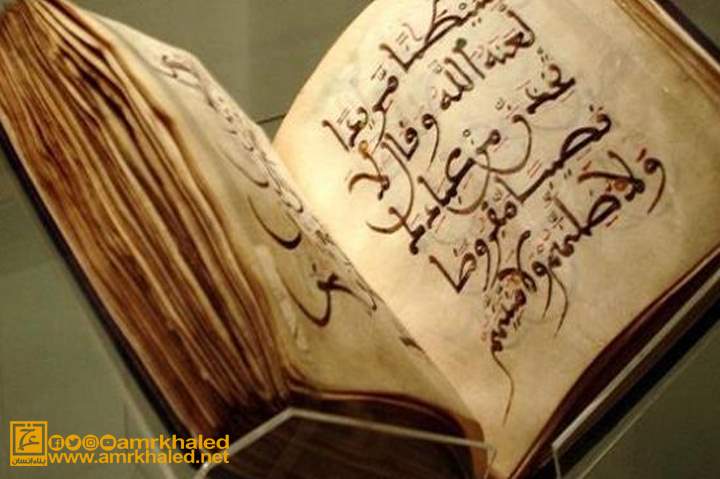 شيطنا مريدا
لعنه الله وقال لا
تخذن من عبادك
نصيبا مفروضا
ولأضلنهم ولأمنينهم
بناء إنسان
amrkhaled
www.amrkhaled.net